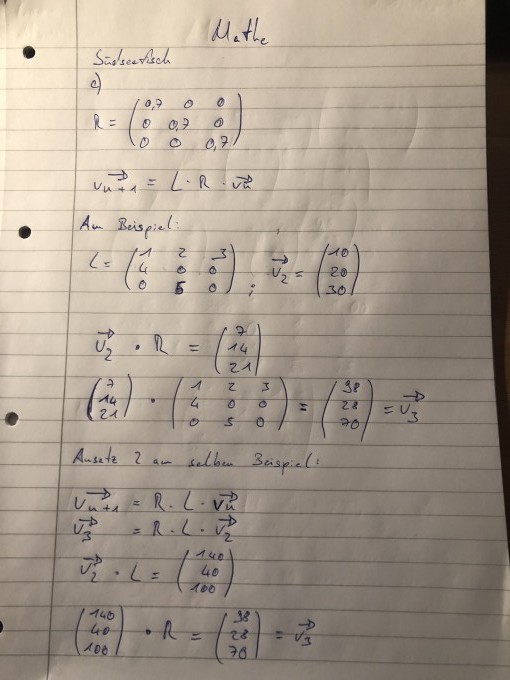 Mathe
Südseefisch
c)
R = (0,7 0 0
0 0,7 0
0 0 0,7)
vₙ₊₁→ = L · R · vₙ→
Am Beispiel:
L = (1 2 3
4 0 0
0 5 0) ; v₂→ = (10
20
30)
v₂→ · R = (7
14
21)
(7
14
21) · (1 2 3
4 0 0
0 5 0) = (98
28
70) = v₃→
Ansatz 2 am selben Beispiel:
vₙ₊₁→ = R · L · vₙ→
v₃→ = R · L · v₂→
v₂→ · L = (140
40
100)
(140
40
100) · R = (98
28
70) = v₃→